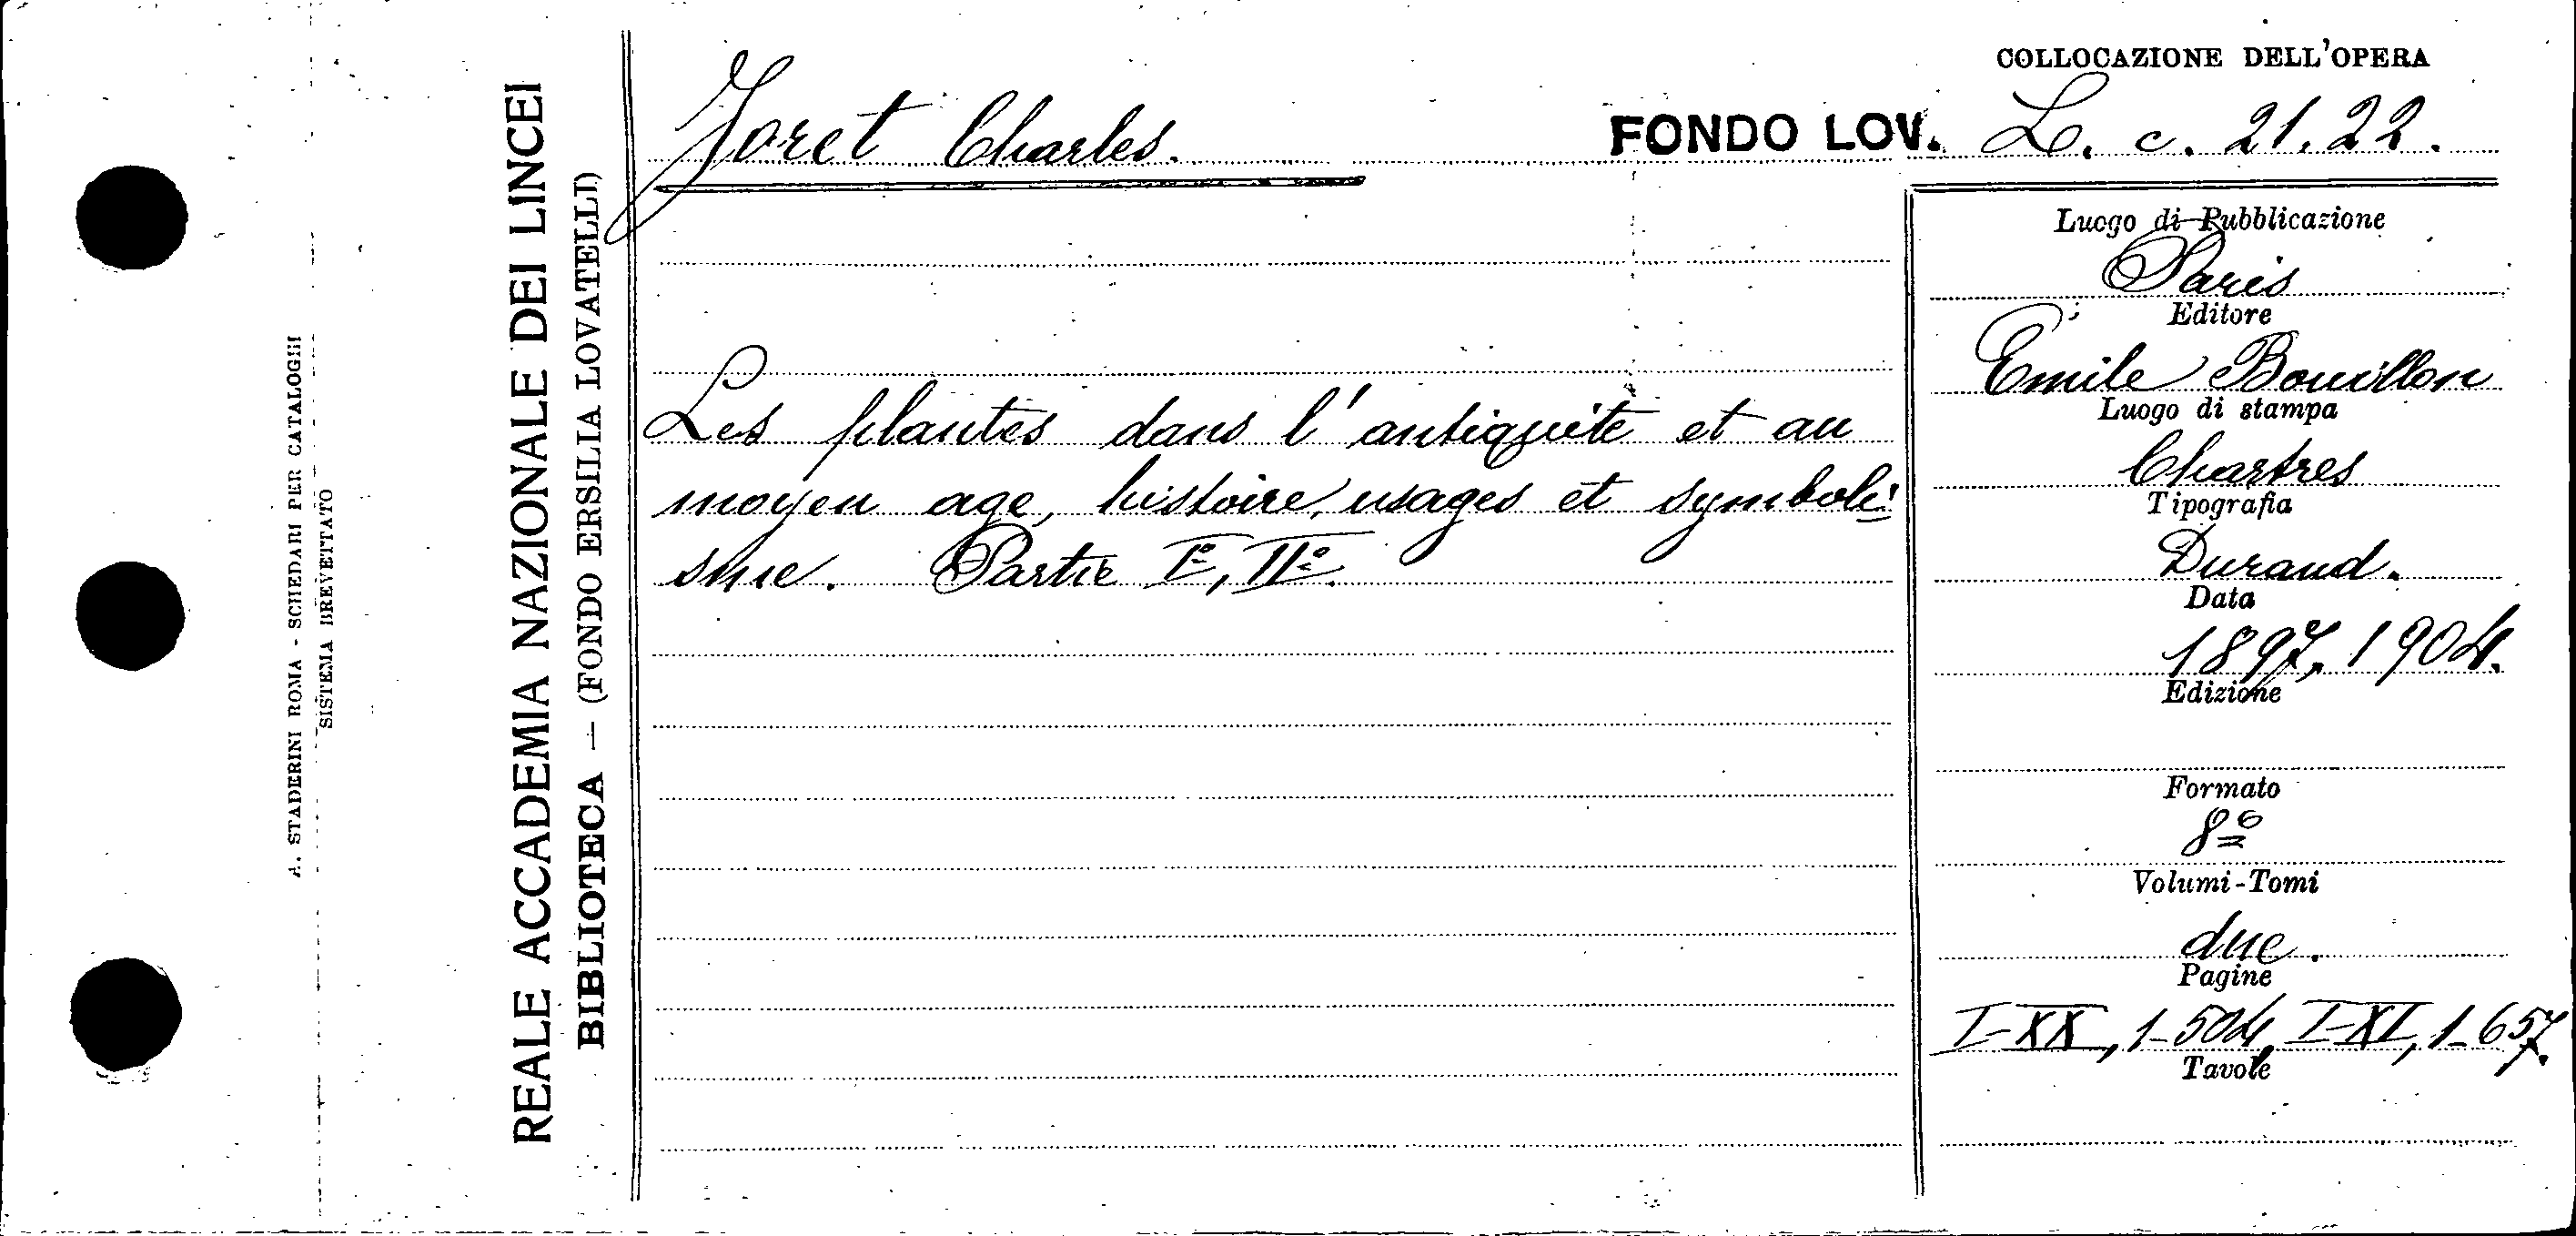 A. STADERINI ROMA - SCHEDARI PER CATALOGHI
SISTEMA BREVETTATO
REALE ACCADEMIA NAZIONALE DEI LINCEI
BIBLIOTECA — (FONDO ERSILIA LOVATELLI)
Joret Charles.
Les plantes dans l'antiquité et au
moyen age, histoire, usages et symboli
sme. Partie I°, II°.
COLLOCAZIONE DELL'OPERA
FONDO LOV. L. c. 21.22.
Luogo di Pubblicazione
Paris
Editore
Emile Bouillon
Luogo di stampa
Chartres
Tipografia
Durand.
Data
1897, 1904.
Edizione
Formato
8°
Volumi-Tomi
due.
Pagine
I-XX, 1-504, I-XI, 1-657.
Tavole